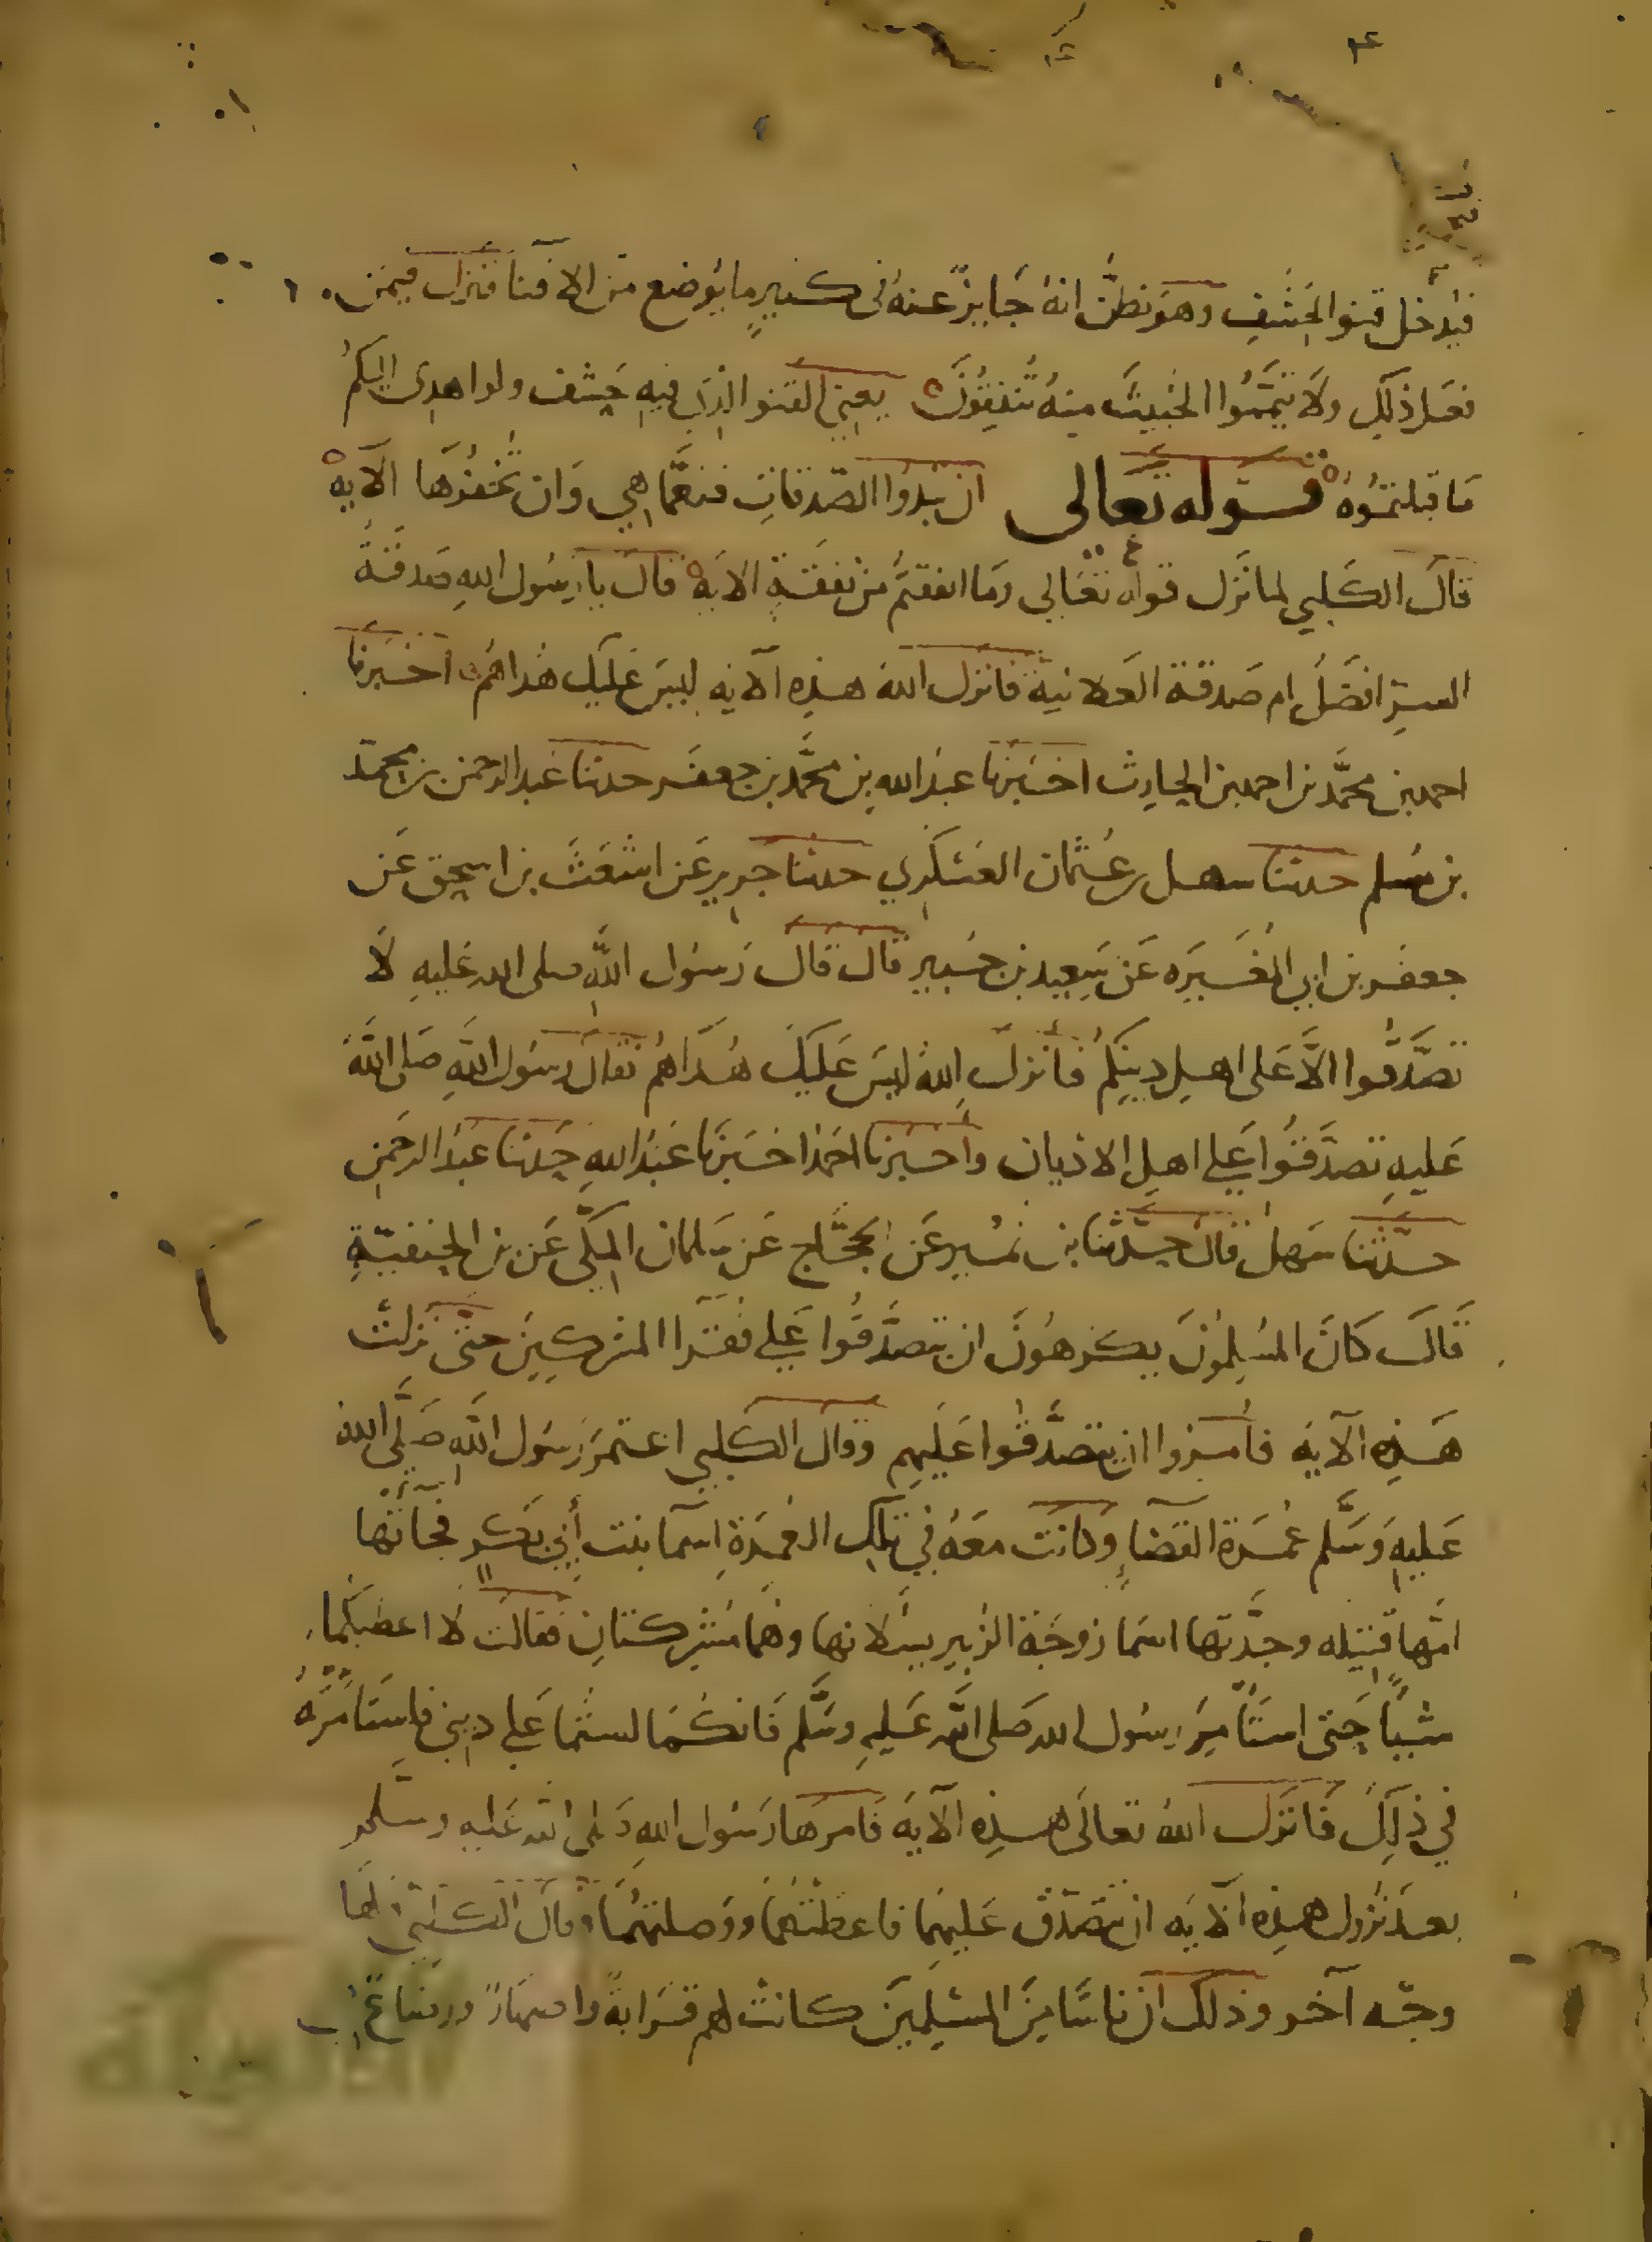 فيدخل قنو الحشف وهو يظن انه جايز عنه في كثير ما يوضع من الاقنا فنزل فيمن
فعل ذلك ولا تيمموا الخبيث منه تنفقون يعني القنو الذي فيه حشف ولو اهدى اليكم
ما قبلتموه قوله تعالى ان تبدوا الصدقات فنعما هي وان تخفوها الآيه
قال الكلبي لما نزل قوله تعالى وما انفقتم من نفقة الايه قال يا رسول الله صدقة
السر افضل ام صدقة العلانية فانزل الله هذه الآيه ليس عليك هداهم اخبرنا
احمد بن محمد بن احمد بن الحارث اخبرنا عبد الله بن محمد بن جعفر حدثنا عبد الرحمن بن محمد
بن مسلم حدثنا سهل بن عثمان العسكري حدثنا جرير عن اشعث بن اسحق عن
جعفر بن ابي المغيره عن سعيد بن جبير قال قال رسول الله صلى الله عليه لا
تصدقوا الا على اهل دينكم فأنزل الله ليس عليك هداهم فقال رسول الله صلى الله
عليه تصدقوا على اهل الاديان وأخبرنا احمد اخبرنا عبد الله حدثنا عبد الرحمن
حدثنا سهل قال حدثنا بن نمير عن الحجاج عن سلمان المكي عن بن الحنفية
قال كان المسلمون يكرهون ان يتصدقوا على فقرآ المشركين حتى نزلت
هذه الآيه فأمروا ان يتصدقوا عليهم وقال الكلبي اعتمر رسول الله صلى الله
عليه وسلم عمرة القضاء وكانت معه في تلك العمرة اسمآ بنت أبي بكر فجاتها
امها قتيله وجدتها اسما زوجة الزبير يسلانها وهما مشركتان فقالت لا اعطيكما
شيئا حتى استأمر رسول الله صلى الله عليه وسلم فانكما لستما على ديني فاستأمرته
في ذلك فانزل الله تعالى هذه الآية فامرها رسول الله صلى الله عليه وسلم
بعد نزول هذه الآيه ان تتصدق عليهما فاعطتهما ووصلتهما وقال الكلبي لها
وجه آخر وذلك ان ناسا من المسلمين كانت لهم قرابة واصهار ورضاع